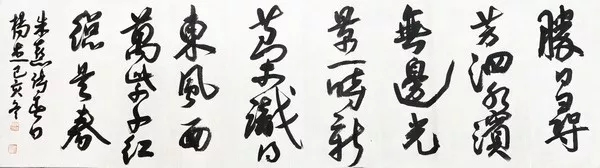 勝日尋
芳泗水濱
無邊光
景一時新
等閒識得
東風面
萬紫千紅
總是春
朱熹詩春日
楊 己亥冬